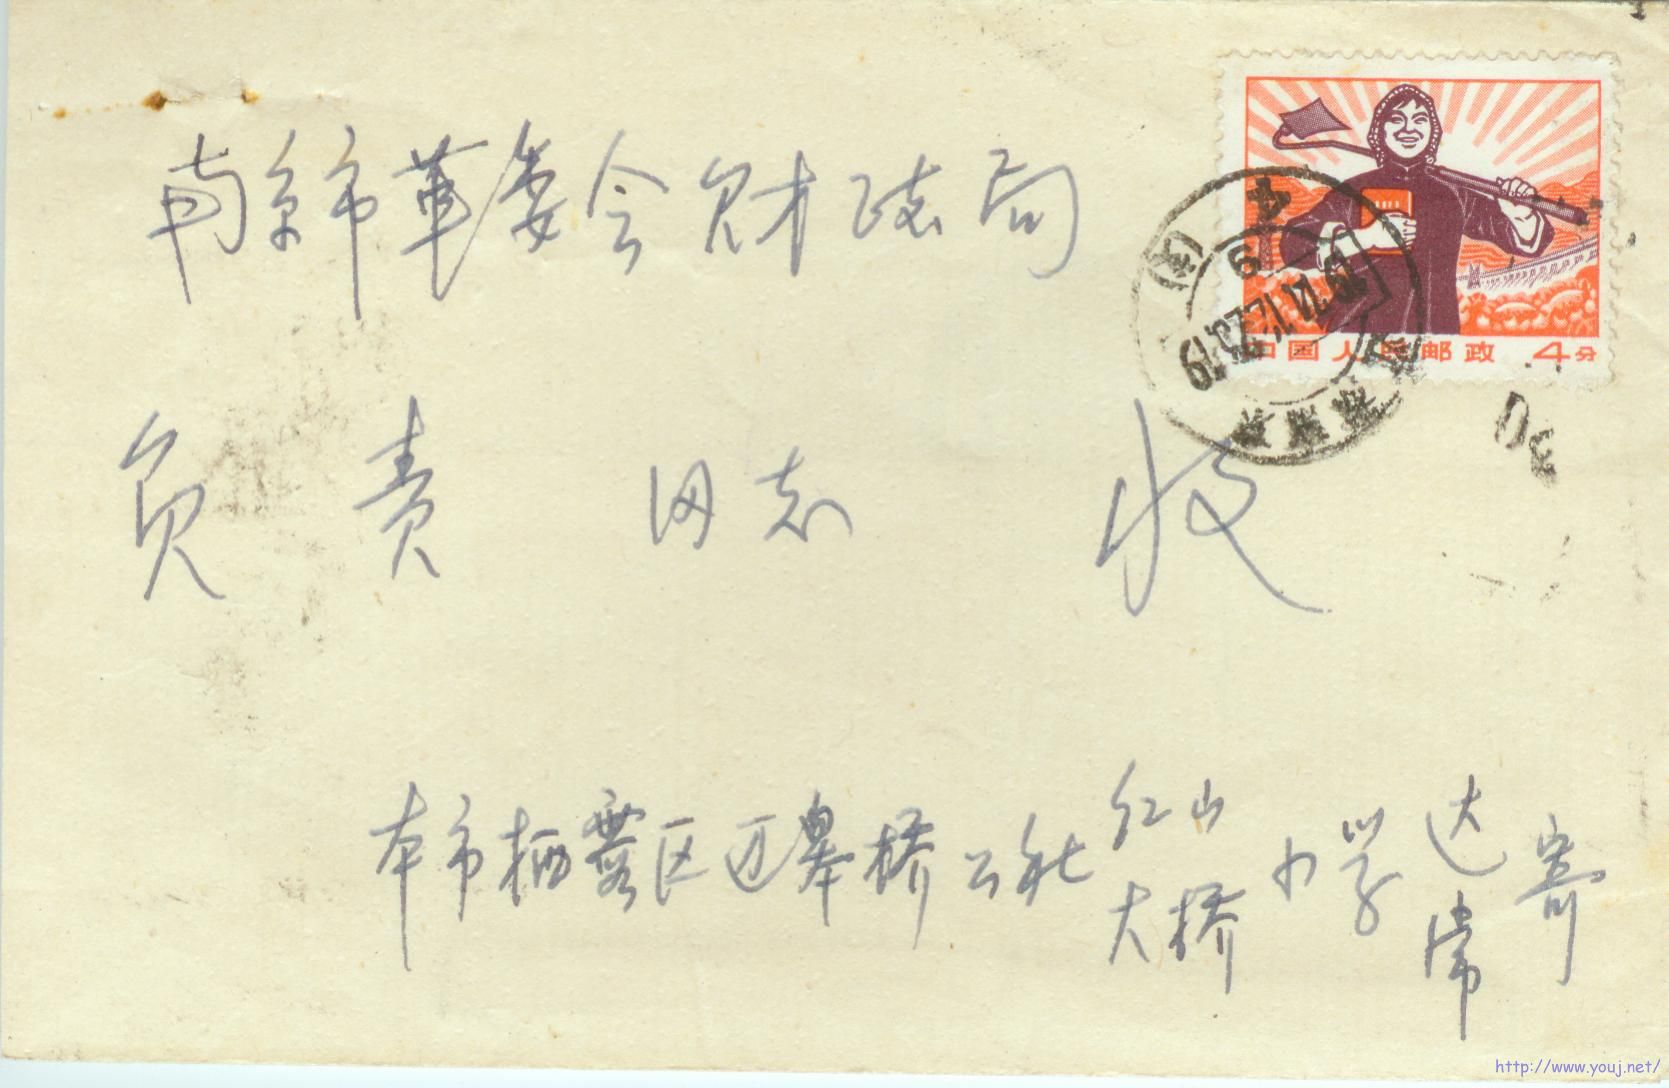 南京市革委会财政局
中国人民邮政 4分
负责 同志 收
本市栖霞区迈皋桥公社
红山
大桥
小学
达
常
寄
http://www.youj.net/